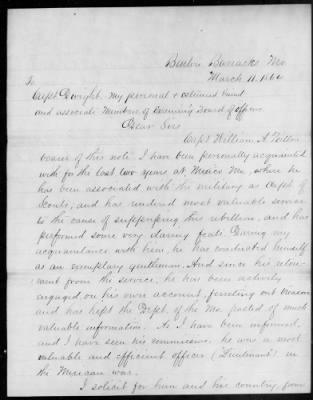 Benton Barracks Mo.
March 11, 186
To
Capt Dwight, My personal & esteemed friend
and associate Members of Examining Board of officers
Dear Sirs
Capt William A. Tilton
bearer of this note. I have been personally acquainted
with for the last two years at Mexico Mo, where he
has been associated with the military as Capt of
Scouts, and has rendered most valuable service
to the cause of suppressing this rebellion, and has
performed some very daring feats. During my
acquaintance with him, he has conducted himself
as an exemplary gentleman. And since his retire-
ment from the service, he has been actively
engaged on his own account, ferreting out treason
and has kept the Dept. of the Mo. posted of much
valuable information. As I have been informed,
and I have seen his commission, he was a most
valuable and efficient officer (Lieutenant) in
the Mexican war.
I solicit for him and his country, your